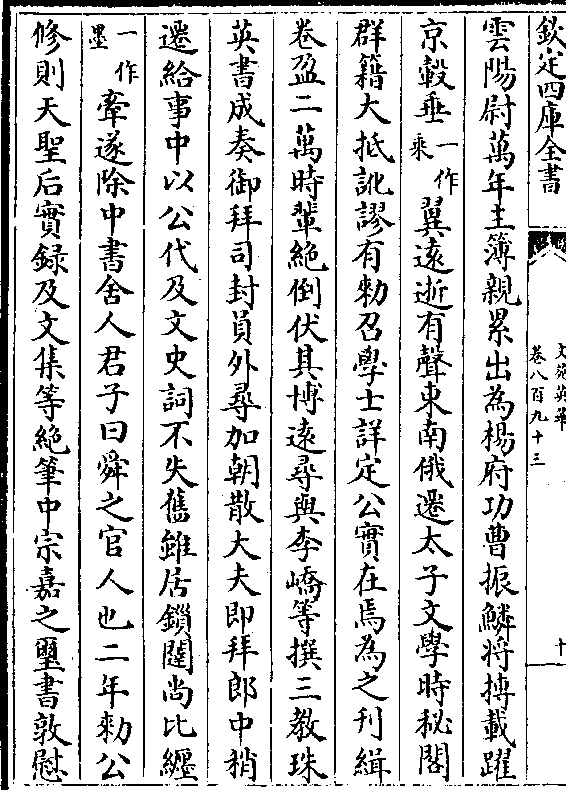 欽定四庫全書
文苑英華
卷八百九十三
十
雲陽尉萬年主簿親累出為楊府功曹振鱗將摶載躍
京轂垂一作乘翼遠逝有聲東南俄遷太子文學時秘閣
群籍大抵訛謬有勅召學士詳定公實在焉為之刊緝
卷盈二萬時輩絶倒伏其博遠尋與李嶠等撰三教珠
英書成奏御拜司封員外尋加朝散大夫即拜郎中稍
遷給事中以公代及文史詞不失舊雖居鎖闥尚比纒
一作墨牽遂除中書舍人君子曰舜之官人也二年勅公
修則天聖后實録及文集等絶筆中宗嘉之璽書敦慰